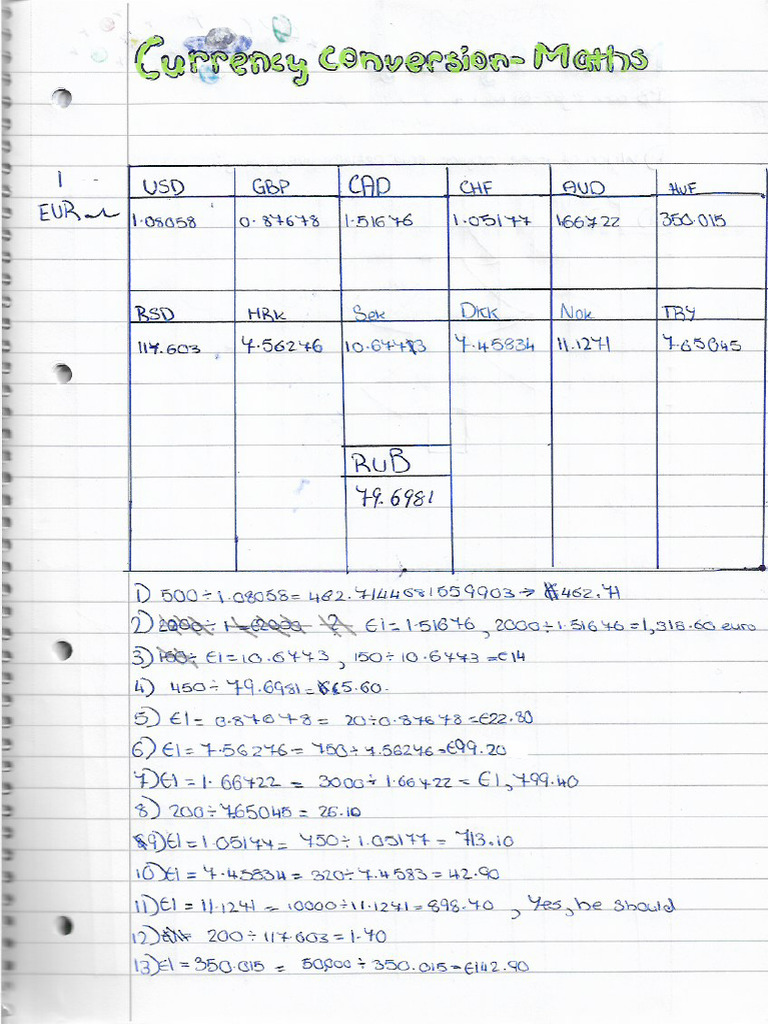 Currency Conversion - Maths
1 EUR
USD GBP CAD CHF AUD HUF
1.08058 0.87678 1.51676 1.05177 1.66722 350.015
RSD HRK Sek DKK Nok TRY
117.603 7.56276 10.6773 7.45834 11.1271 7.65045
RUB
79.6981
1) 500÷1.08058=462.7144681559903→ €462.71
2) €1=1.51676, 2000÷1.51676=1,318.60 euro
3) €1=10.6773, 150÷10.6773=€14
4) 450÷79.6981=€5.60.
5) €1=0.87678= 20÷0.87678=€22.80
6) €1=7.56276=750÷7.56276=€99.20
7) €1=1.66722= 3000÷1.66722=€1,799.40
8) 200÷765045=26.10
9) €1=1.05177= 750÷1.05177=713.10
10) €1=7.45834=320÷7.4583=42.90
11) €1=11.1271=10000÷11.1271=898.70, Yes, he should
12) 200÷117.603=1.70
13) €1=350.015= 50,000÷350.015=€142.90